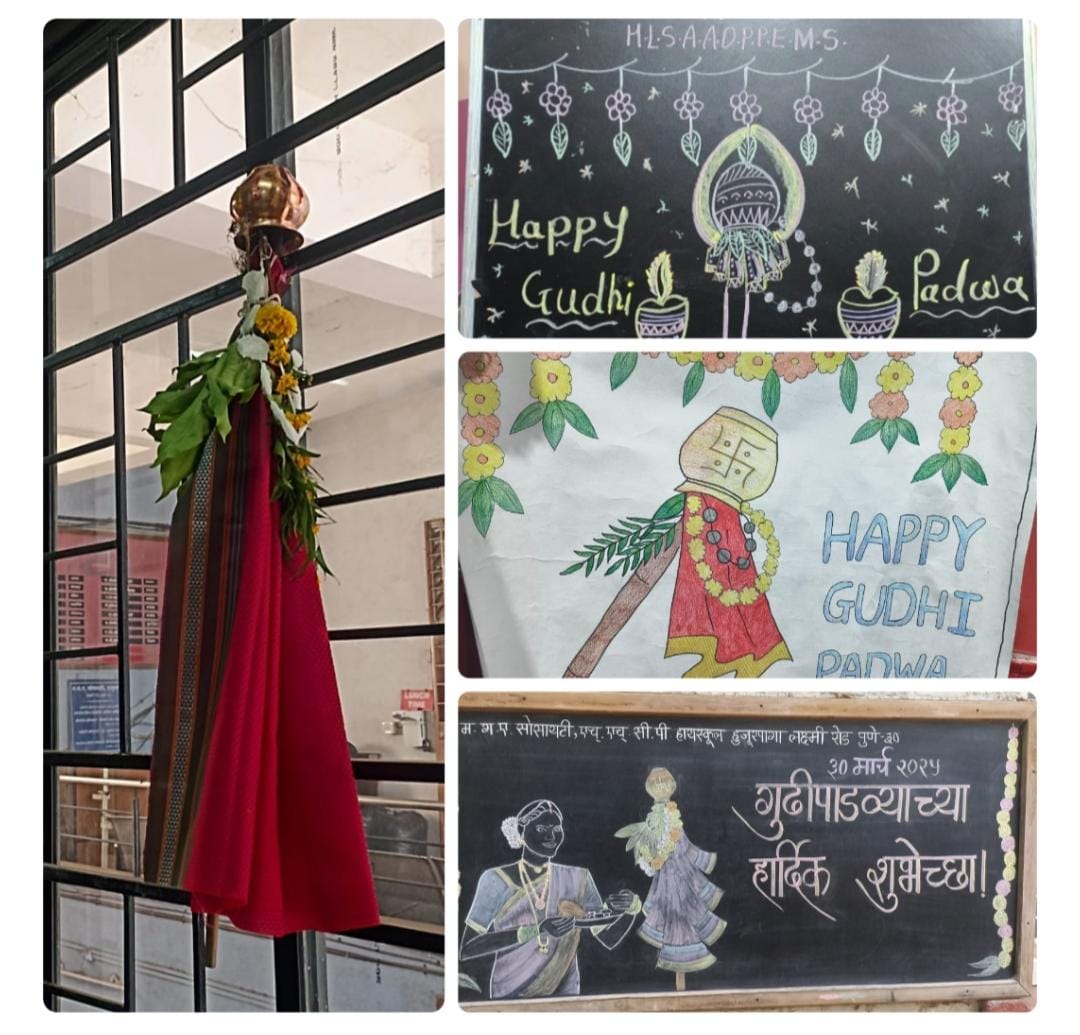 LUNCH
TIME
H.L.S.A.A.D.P.P.E.M.S.
Happy
Gudhi
Padwa
HAPPY
GUDHI
PADWA
म. ग. ए. सोसायटी, एच्. एच्. सी. पी हायस्कूल हुजूरपागा लक्ष्मी रोड पुणे-३०
३० मार्च २०२५
गुढीपाडव्याच्या
हार्दिक शुभेच्छा!